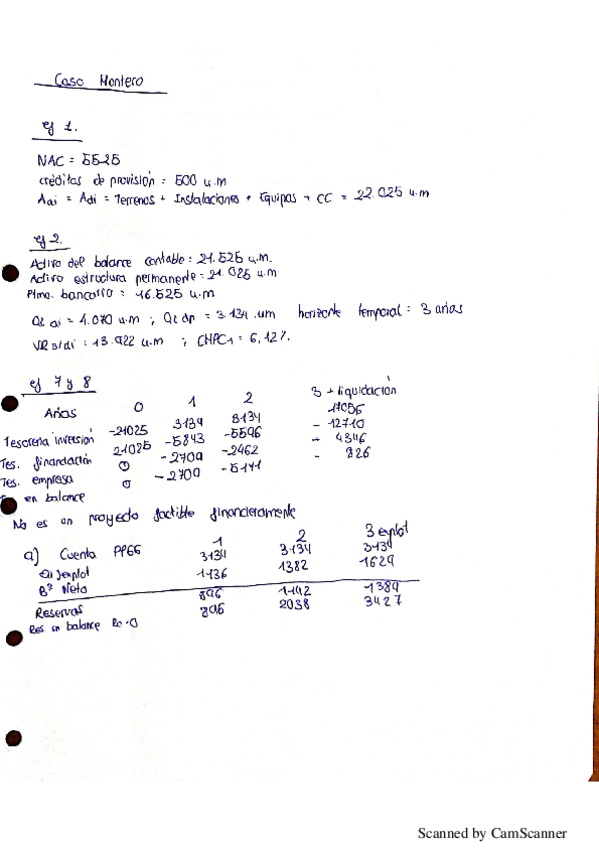 Caso Montero
ej 1.
NAC = 5525
créditos de provisión = 500 u.m
Aai = Adi = Terrenos + Instalaciones + Equipos + CC = 22.025 u.m
ej 2.
Activo del balance contable: 21.525 u.m.
Activo estructura permanente: 21.025 u.m
Ptmo. bancario: 16.525 u.m
Qt ai = 4.070 u.m ; Qt dp = 3.134 .um horizonte temporal: 3 años
VR s/di: 13.922 u.m ; CMPC1 = 6,12%.
ej 7 y 8
Años 0 1 2 3 + liquidación
Tesorería inversión -21025 3134 3134 17056
Tes. financiación 21025 -5843 -5596 - 12710
Tes. empresa 0 -2709 -2462 + 4346
en balance 0 -2709 -5171 - 826
No es un proyecto factible financieramente
a) Cuenta PPGG 1 2 3 explot
explot 3134 3134 3134
Bº Neto 1136 1382 1629
Reservas 896 1142 1389
Res en balance 896 2038 3427